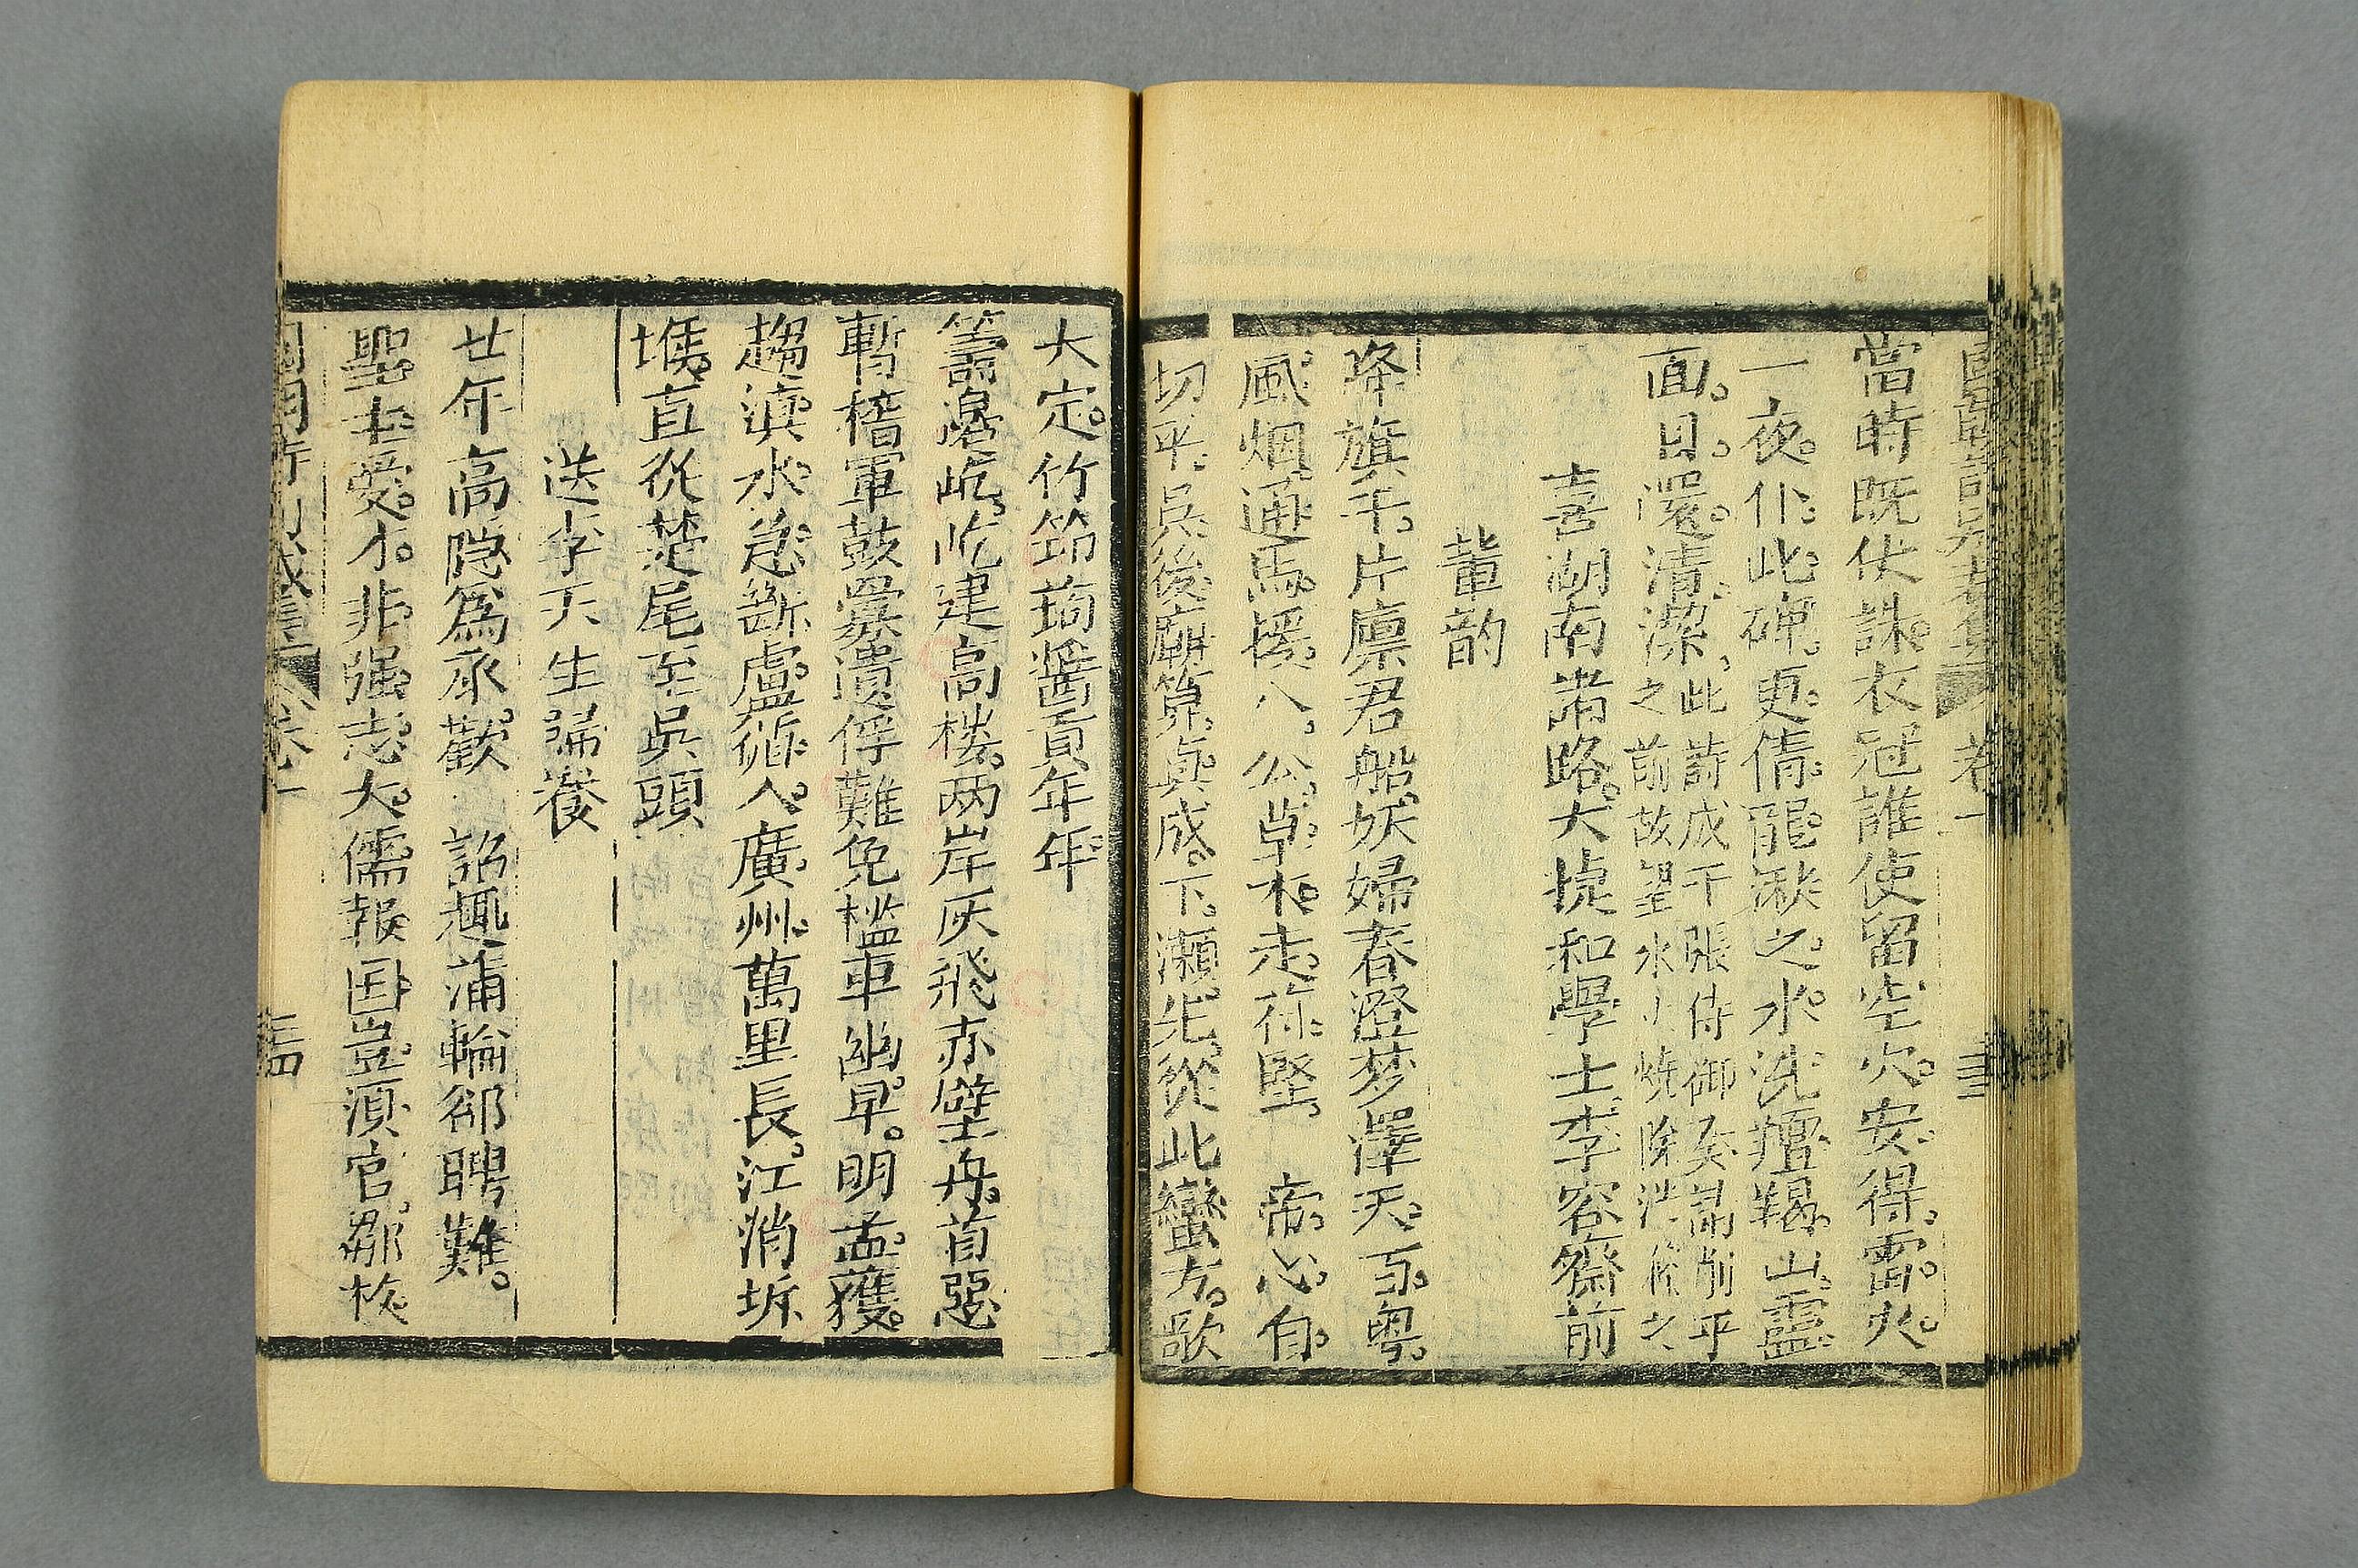 當時既伏誅衣冠誰使留空穴安得雷火
一夜仆此碑更倩龍湫之水洗壇羯山靈
面目還清潔此詩成于張侍御奏請削平
之前故望水火燒除洪之
喜湖南肅路大捷和學士李容齋前
輩韵
降旗千片廪君船妖婦春澄梦澤天百粤
風烟通馬援八公草木走苻堅 帝心自
切平吳後廟筭真成下瀬先從此蠻方歌
大定竹筇蒟醬貢年年
籌邊屹屹建高楼两岸灰飛赤壁舟首惡
暫稽軍鼓釁遺俘難免檻車幽早明孟獲
趨滇水急斷盧循入廣州萬里長江消坼
堠直從楚尾至吳頭
送李天生歸養
廿年高隐爲承歡 詔趣蒲輪郤聘難
聖主愛才非强志大儒報国豈須官鄒枚
卷一
三四